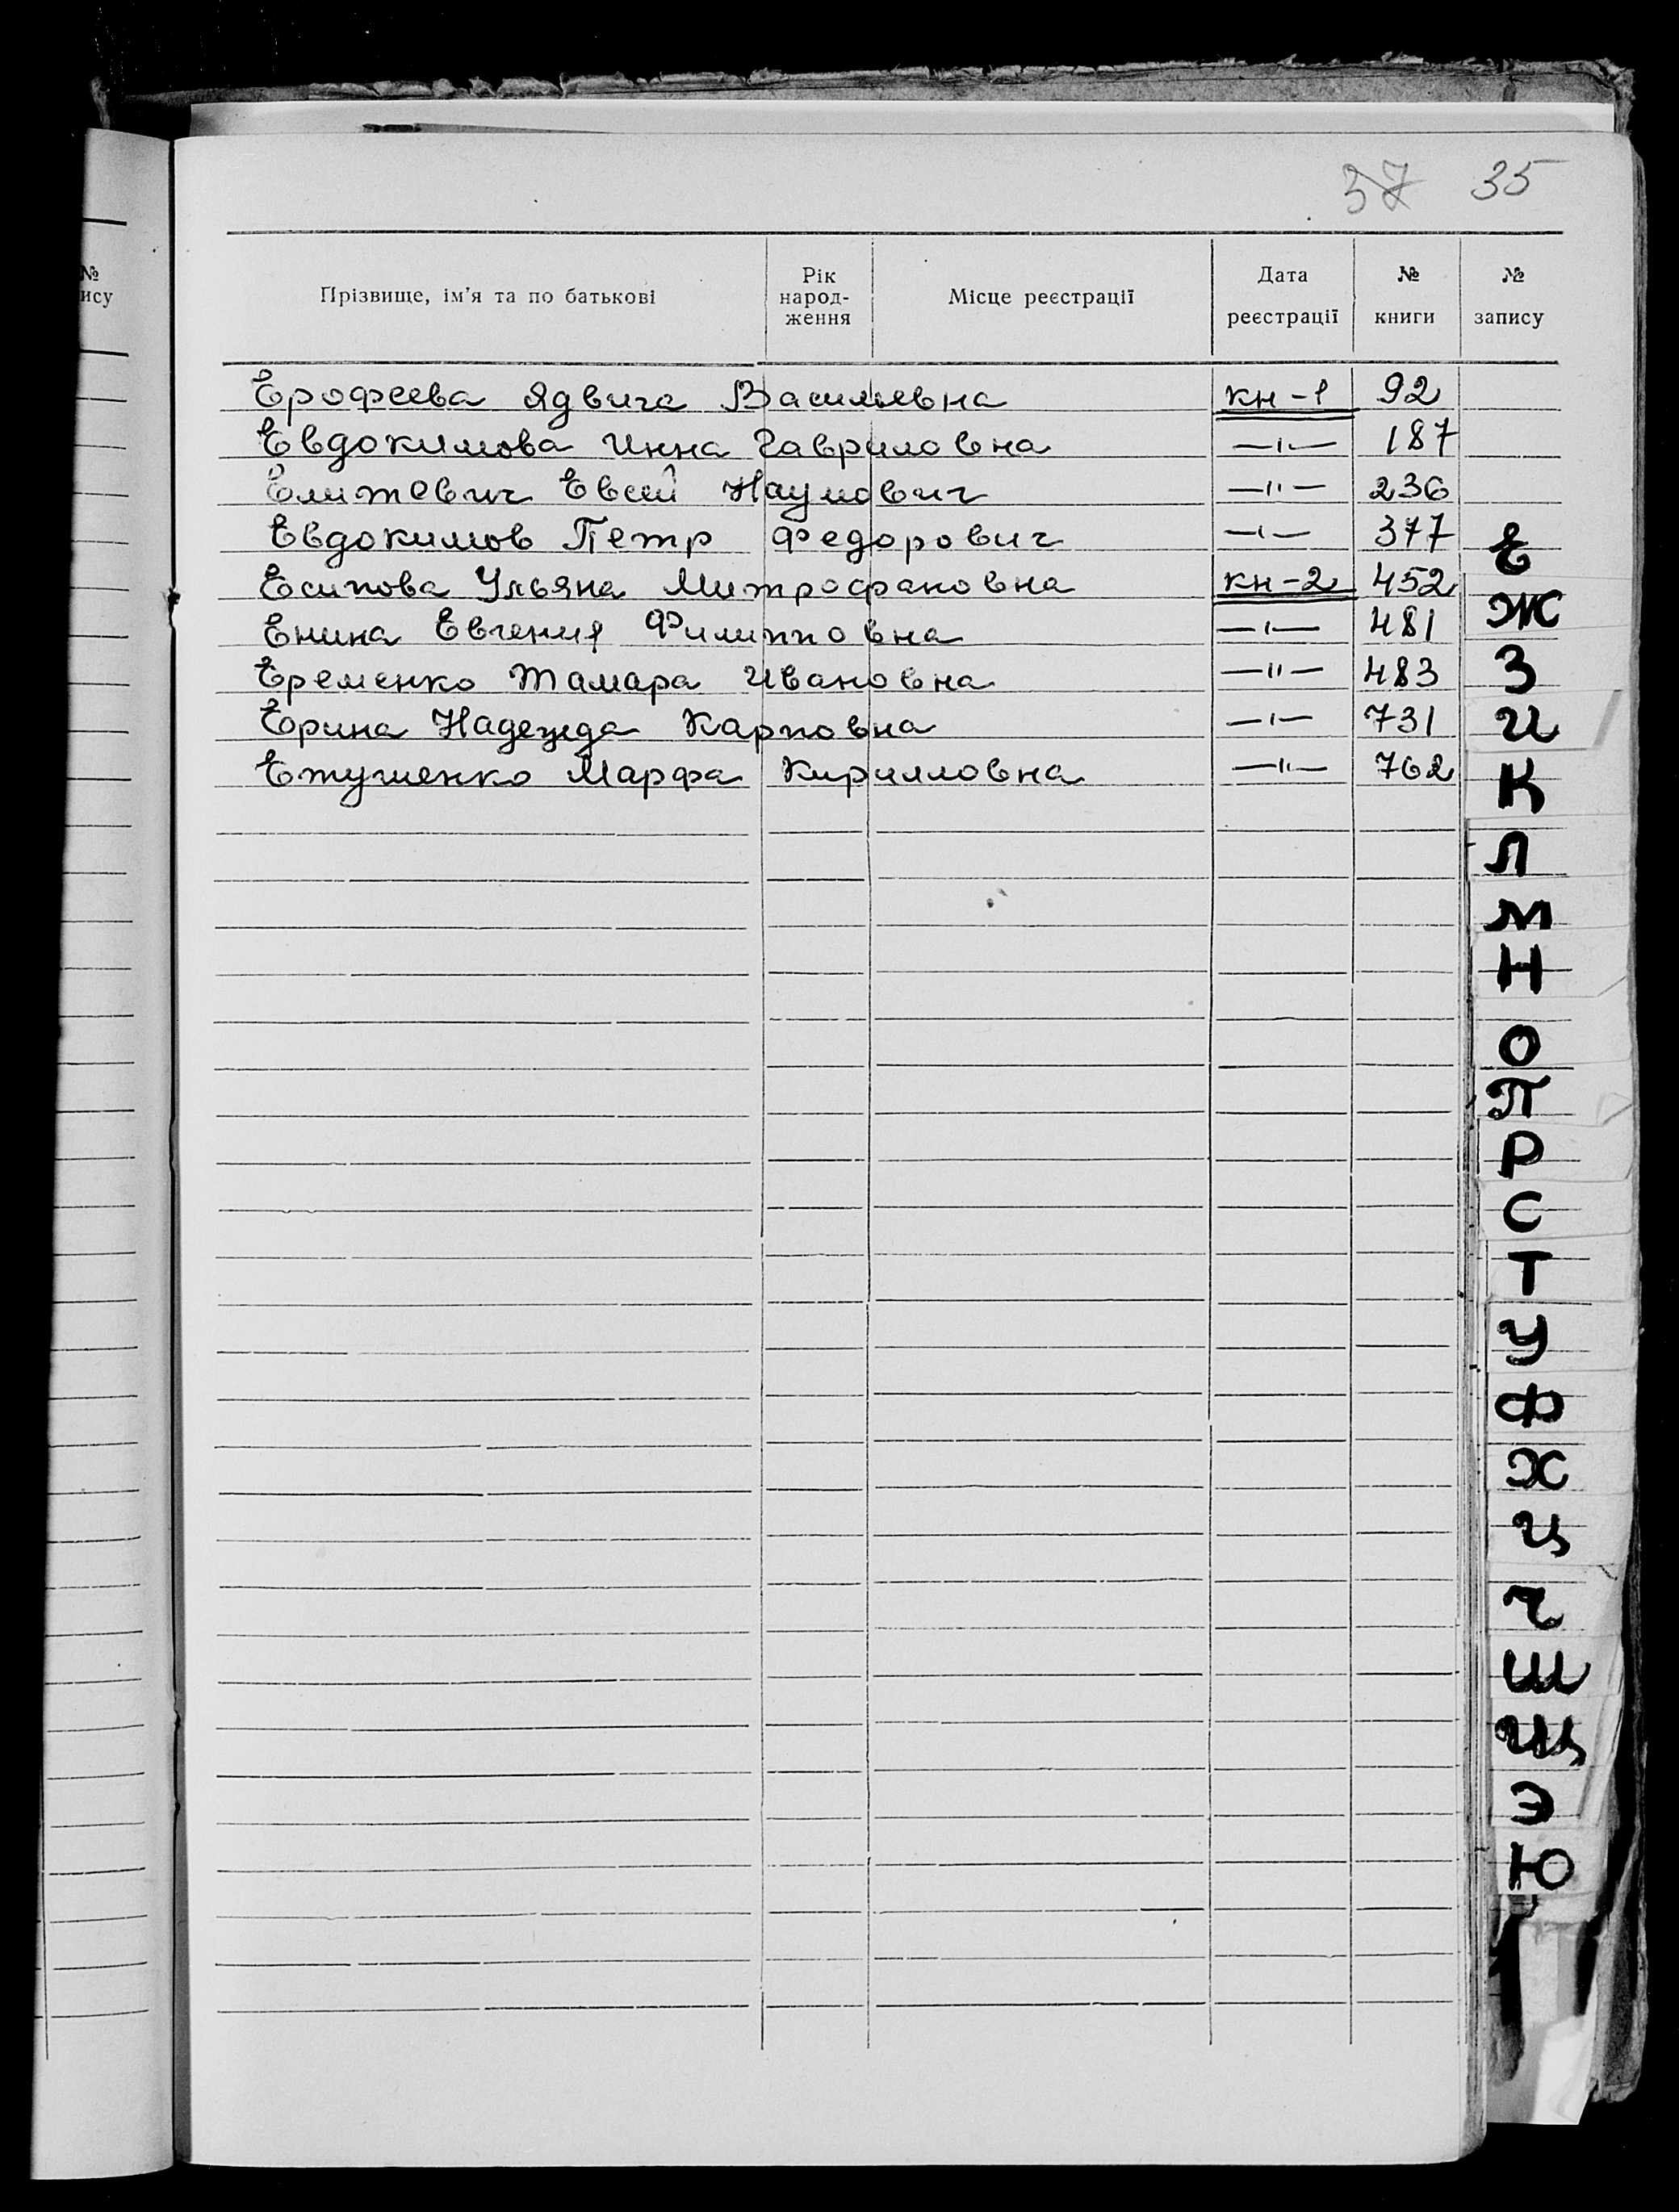 37 35
№
ису
Прізвище, ім'я та по батькові
Рік народ-
ження
Місце реєстрації
Дата реєстрації
№ книги
№ запису
Ерофеева Ядвига Васильевна кн-1 92
Евдокимова Инна Гавриловна —"— 187
Елитевич Евсей Наумович —"— 236
Евдокимов Петр Федорович —"— 377
Есипова Ульяна Митрофановна кн-2 452
Енина Евгения Филипповна —"— 481
Еременко Тамара Ивановна —"— 483
Ерина Надежда Карповна —"— 731
Етушенко Марфа Кирилловна —"— 762
Е
Ж
З
И
К
Л
М
Н
О
П
Р
С
Т
У
Ф
Х
Ц
Ч
Ш
Щ
Э
Ю